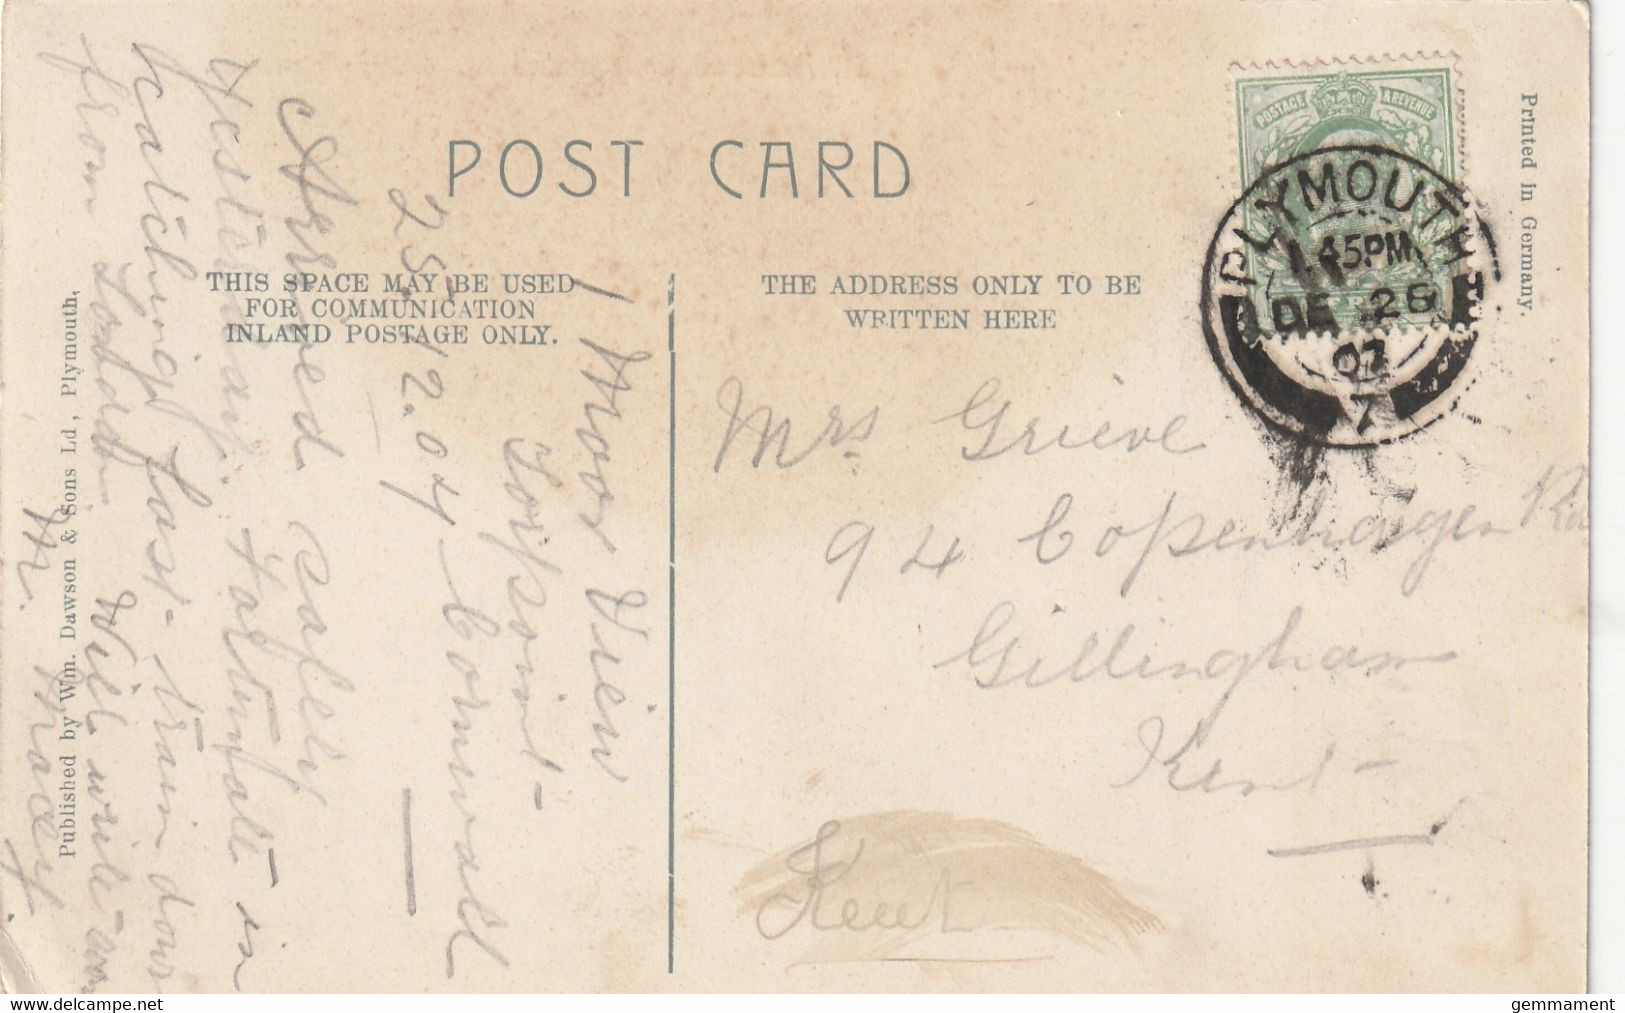 POST CARD
THIS SPACE MAY BE USED
FOR COMMUNICATION
INLAND POSTAGE ONLY.
THE ADDRESS ONLY TO BE
WRITTEN HERE
POSTAGE & REVENUE
PLYMOUTH
1.45PM
DE 26
07
7
Printed in Germany.
Published by Wm. Dawson & Sons Ld, Plymouth,
Mrs Grieve
94 Copenhagen Rd
Gillingham
Kent
Kent
1 Moor View
Torpoint
Cornwall
25.12.07
Arrived safely
yesterday. Fortunate in
catching fast train down
from London. Will write soon
M. Macey.
gemmament